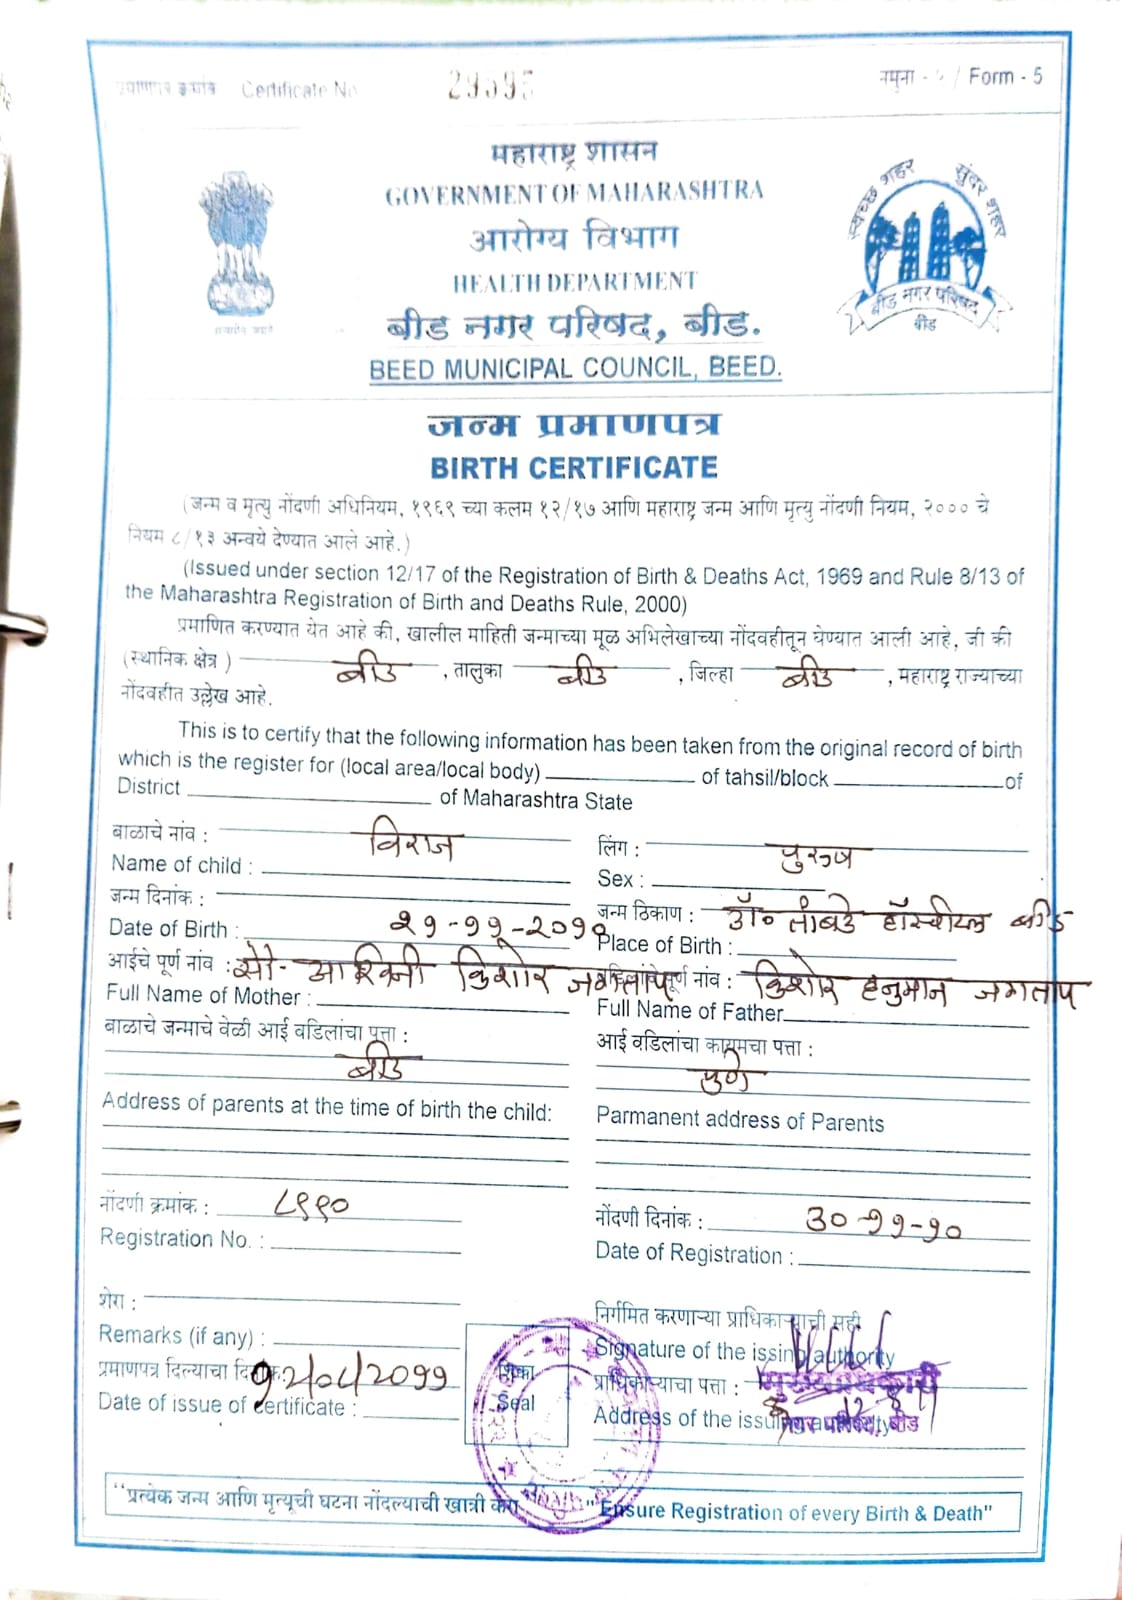 प्रमाणपत्र क्रमांक Certificate No 29595 नमुना - ५ / Form - 5
महाराष्ट्र शासन
GOVERNMENT OF MAHARASHTRA
आरोग्य विभाग
HEALTH DEPARTMENT
बीड नगर परिषद, बीड.
BEED MUNICIPAL COUNCIL, BEED.
स्वच्छ शहर सुंदर शहर
बीड नगर परिषद
बीड
जन्म प्रमाणपत्र
BIRTH CERTIFICATE
(जन्म व मृत्यु नोंदणी अधिनियम, १९६९ च्या कलम १२/१७ आणि महाराष्ट्र जन्म आणि मृत्यु नोंदणी नियम, २००० चे
नियम ८/१३ अन्वये देण्यात आले आहे.)
(Issued under section 12/17 of the Registration of Birth & Deaths Act, 1969 and Rule 8/13 of
the Maharashtra Registration of Birth and Deaths Rule, 2000)
प्रमाणित करण्यात येत आहे की, खालील माहिती जन्माच्या मूळ अभिलेखाच्या नोंदवहीतून घेण्यात आली आहे, जी की
(स्थानिक क्षेत्र ) बीड , तालुका बीड , जिल्हा बीड , महाराष्ट्र राज्याच्या
नोंदवहीत उल्लेख आहे.
This is to certify that the following information has been taken from the original record of birth
which is the register for (local area/local body) of tahsil/block of
District of Maharashtra State
बाळाचे नांव : विराज लिंग : पुरुष
Name of child : Sex :
जन्म दिनांक : जन्म ठिकाण : डॉ. तांबडे हॉस्पीटल बीड
Date of Birth : २१-११-२०१० Place of Birth :
आईचे पूर्ण नांव : सौ. आश्विनी किशोर जगताप वडिलांचे पूर्ण नांव : किशोर हनुमान जगताप
Full Name of Mother : Full Name of Father
बाळाचे जन्माचे वेळी आई वडिलांचा पत्ता : आई वडिलांचा कायमचा पत्ता :
बीड पुणे
Address of parents at the time of birth the child: Parmanent address of Parents
नोंदणी क्रमांक : ८९९० नोंदणी दिनांक : ३०-११-१०
Registration No. : Date of Registration :
शेरा : निर्गमित करणाऱ्या प्राधिकाऱ्याची सही
Remarks (if any) : Signature of the issing authority
प्रमाणपत्र दिल्याचा दिनांक १२/०८/२०११ शिक्का प्राधिकाऱ्याचा पत्ता :
Date of issue of certificate : Seal Address of the issuing authority
नगर परिषद, बीड
"प्रत्येक जन्म आणि मृत्यूची घटना नोंदल्याची खात्री करा "Ensure Registration of every Birth & Death"